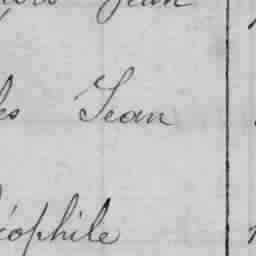 Jean
es Jean
éophile